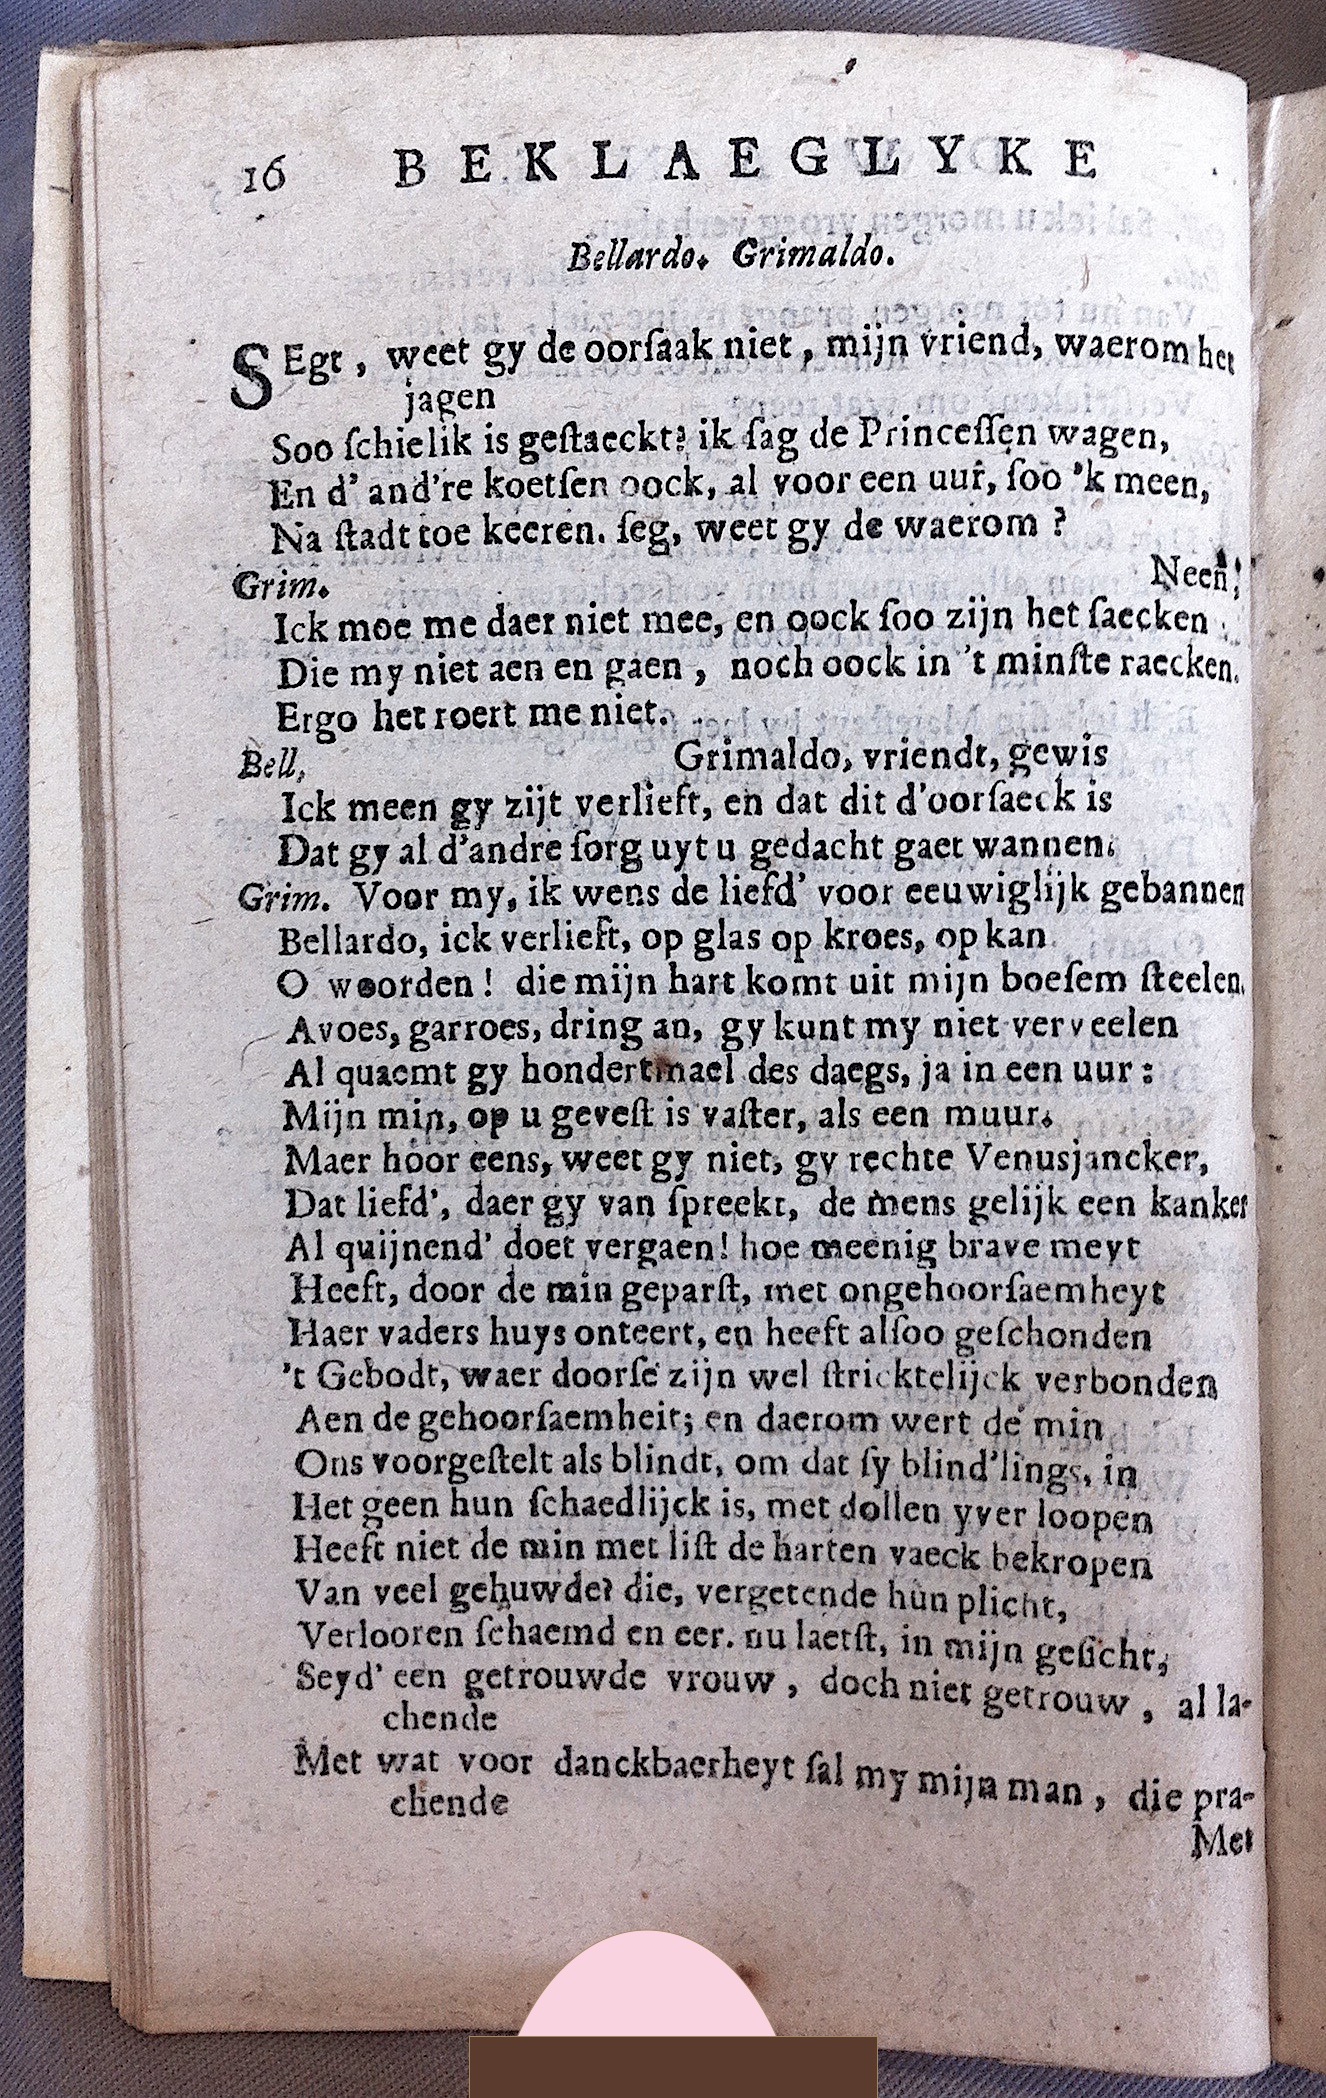 16 BEKLAEGLYKE
Bellardo. Grimaldo.
SEgt, weet gy de oorſaak niet, mijn vriend, waerom het
jagen
Soo ſchielik is geſtaeckt? ik ſag de Princeſſen wagen,
En d' and're koetſen oock, al voor een uur, ſoo 'k meen,
Na ſtadt toe keeren. ſeg, weet gy de waerom?
Grim. Neen!
Ick moe me daer niet mee, en oock ſoo zijn het ſaecken
Die my niet aen en gaen, noch oock in 't minſte raecken.
Ergo het roert me niet.
Bell, Grimaldo, vriendt, gewis
Ick meen gy zijt verlieft, en dat dit d'oorſaeck is
Dat gy al d'andre ſorg uyt u gedacht gaet wannen.
Grim. Voor my, ik wens de liefd' voor eeuwiglijk gebannen
Bellardo, ick verlieft, op glas op kroes, op kan
O woorden! die mijn hart komt uit mijn boeſem ſteelen.
Avoes, garroes, dring an, gy kunt my niet verveelen
Al quaemt gy hondertmael des daegs, ja in een uur:
Mijn min, op u geveſt is vaſter, als een muur.
Maer hoor eens, weet gy niet, gy rechte Venusjancker,
Dat liefd', daer gy van ſpreekt, de mens gelijk een kanker
Al quijnend' doet vergaen! hoe meenig brave meyt
Heeft, door de min geparſt, met ongehoorſaemheyt
Haer vaders huys onteert, en heeft alſoo geſchonden
't Gebodt, waer doorſe zijn wel ſtricktelijck verbonden
Aen de gehoorſaemheit; en daerom wert de min
Ons voorgeſtelt als blindt, om dat ſy blind'lings, in
Het geen hun ſchaedlijck is, met dollen yver loopen
Heeft niet de min met liſt de harten vaeck bekropen
Van veel gehuwde? die, vergetende hun plicht,
Verlooren ſchaemd en eer. nu laetſt, in mijn geſicht,
Seyd' een getrouwde vrouw, doch niet getrouw, al la-
chende
Met wat voor danckbaerheyt ſal my mijn man, die pra-
chende
Met